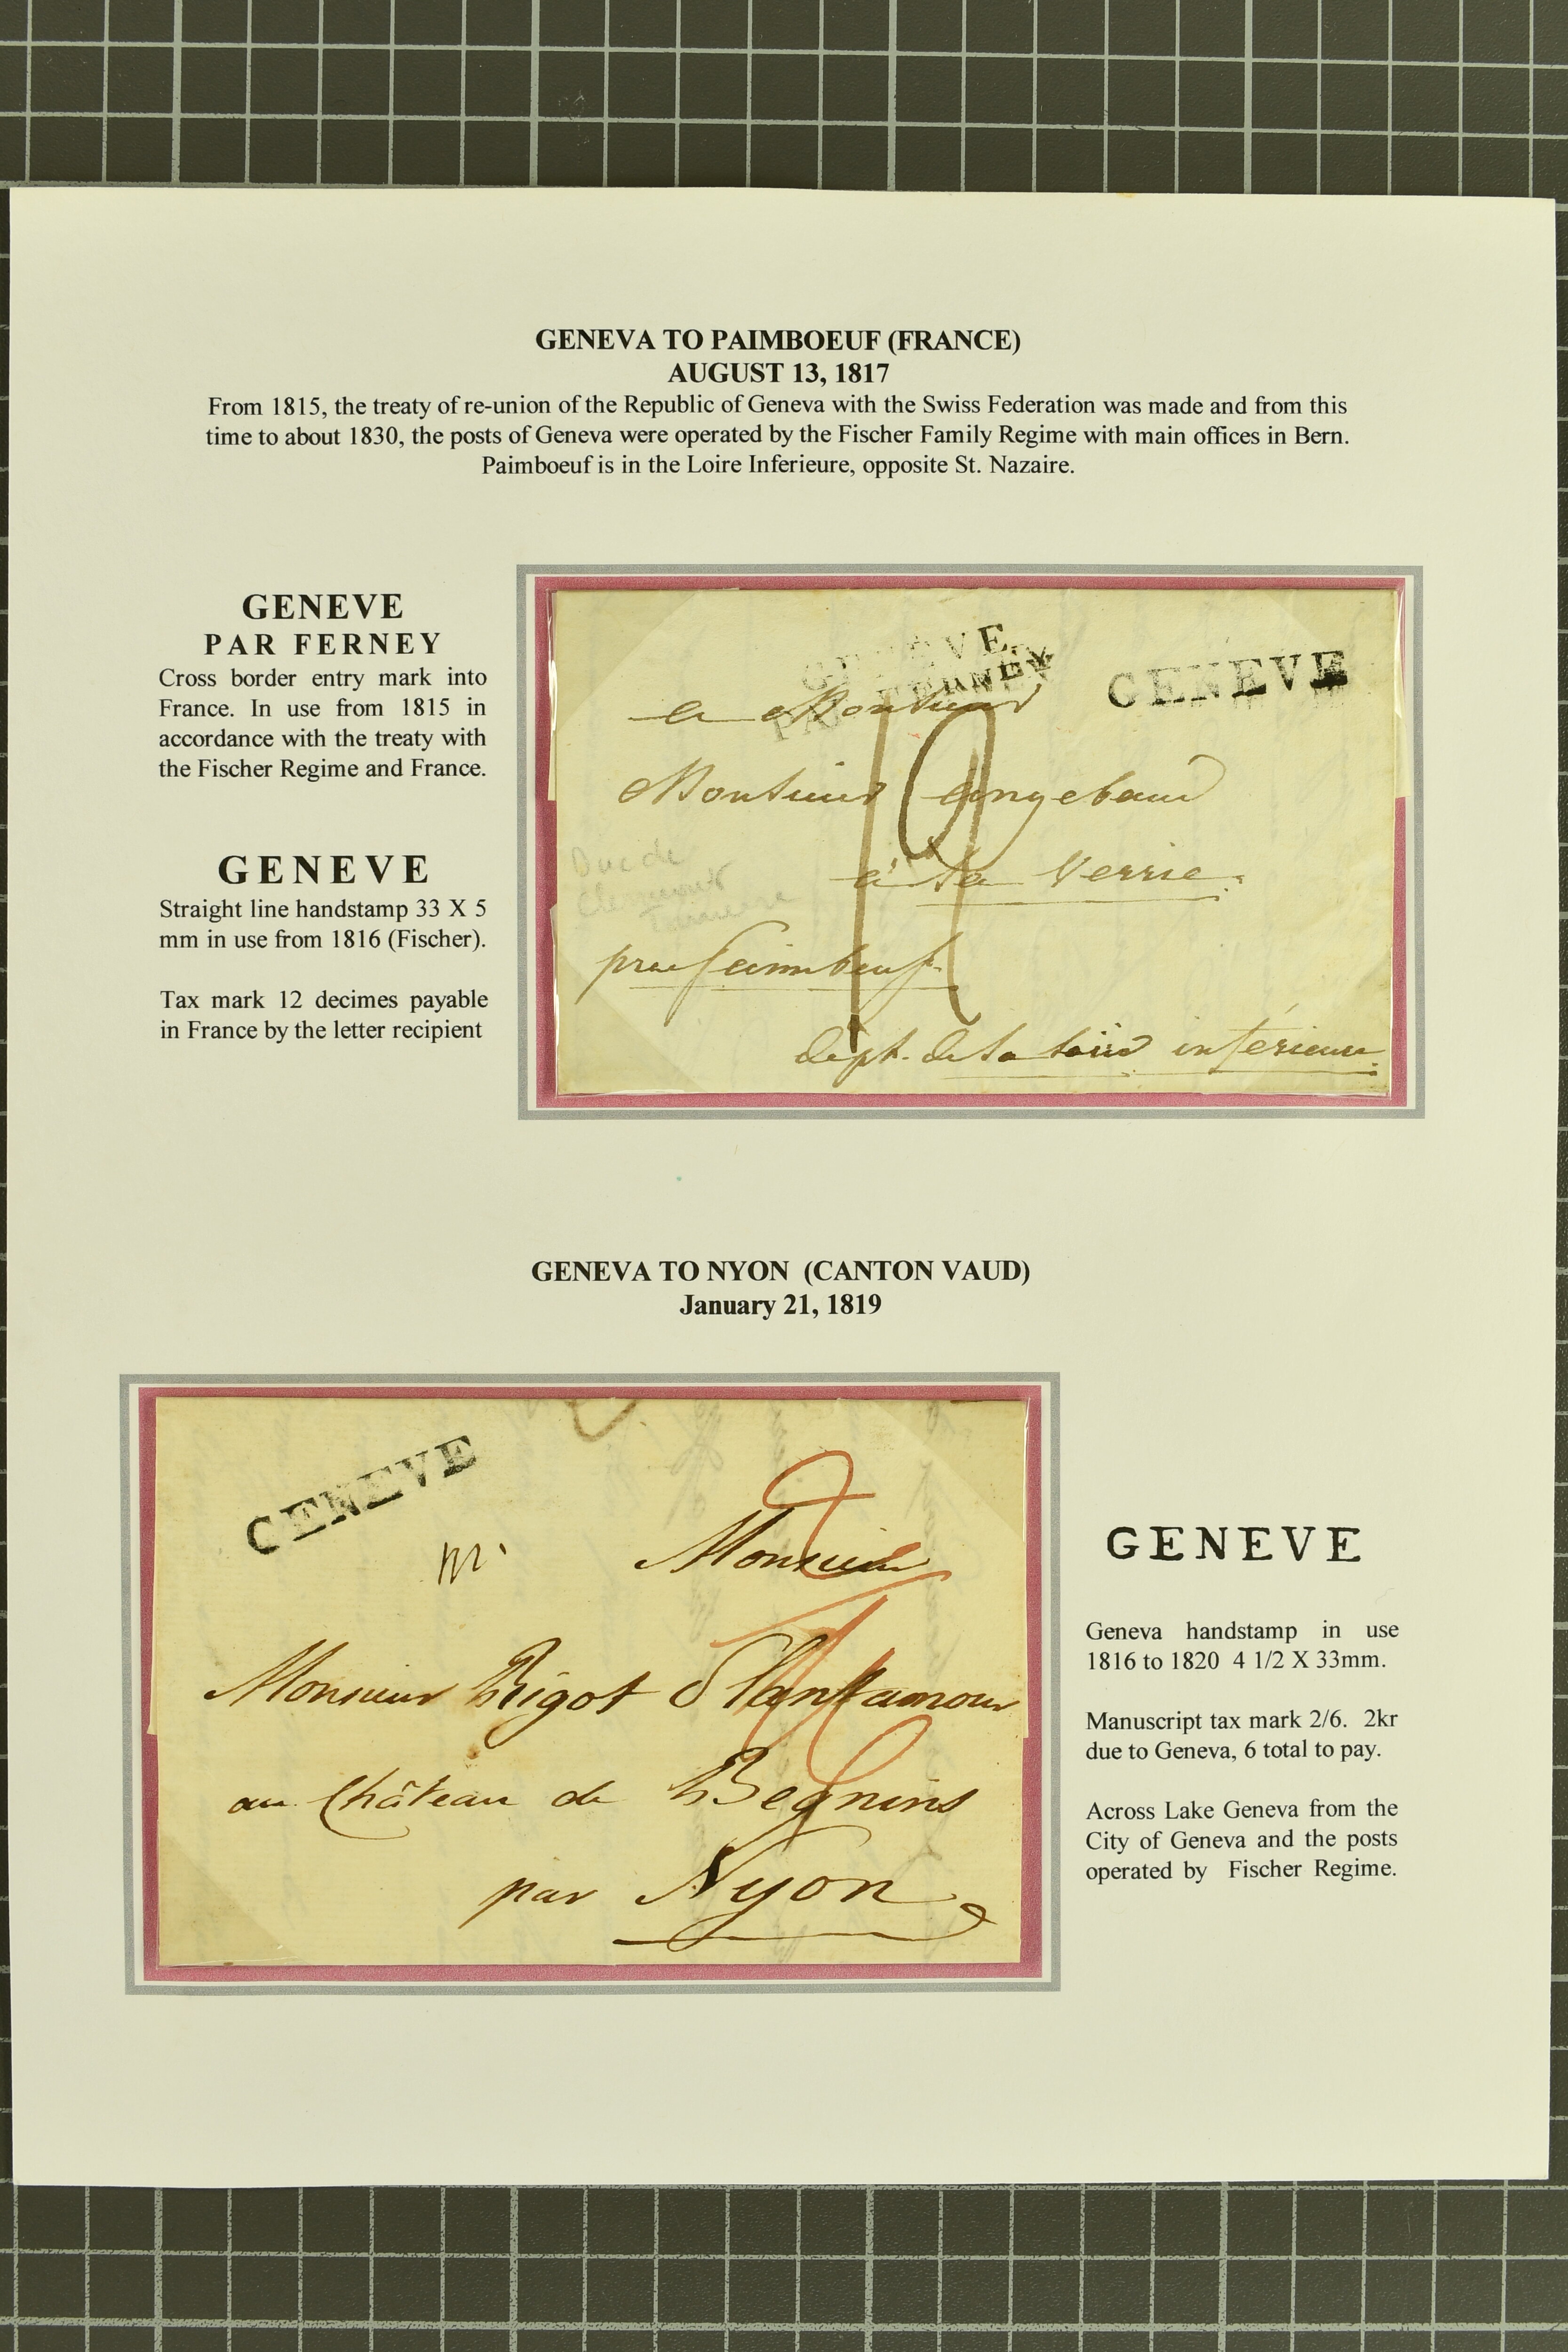 GENEVA TO PAIMBOEUF (FRANCE)
AUGUST 13, 1817
From 1815, the treaty of re-union of the Republic of Geneva with the Swiss Federation was made and from this
time to about 1830, the posts of Geneva were operated by the Fischer Family Regime with main offices in Bern.
Paimboeuf is in the Loire Inferieure, opposite St. Nazaire.
GENEVE
PAR FERNEY
Cross border entry mark into
France. In use from 1815 in
accordance with the treaty with
the Fischer Regime and France.
GENEVE
Straight line handstamp 33 X 5
mm in use from 1816 (Fischer).
Tax mark 12 decimes payable
in France by the letter recipient
GENEVE
PAR FERNEY
GENEVE
a Monsieur
Monsieur angebaud
à la Verrie
Duc de
dept. de la loire inférieure
GENEVA TO NYON (CANTON VAUD)
January 21, 1819
GENEVE
Monsieur
Monsieur Rigot Plantamour
au Château de Begnins
par Nyon
GENEVE
Geneva handstamp in use
1816 to 1820 4 1/2 X 33mm.
Manuscript tax mark 2/6. 2kr
due to Geneva, 6 total to pay.
Across Lake Geneva from the
City of Geneva and the posts
operated by Fischer Regime.